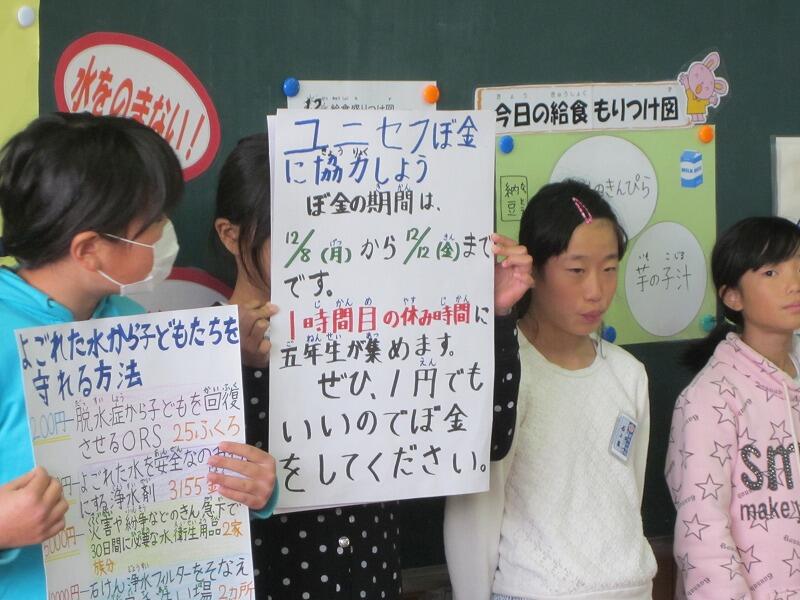 水をのまない!
12/ 給食盛りつけ図
ユニセフぼ金
に協力しよう
ぼ金の期間は、
12/8(月)から12/12(金)まで
です。
1時間目の休み時間に
五年生が集めます。
ぜひ、1円でも
いいのでぼ金
をしてください。
よごれた水から子どもたちを
守れる方法
200円 脱水症から子どもを回復
させるORS 25ふくろ
よごれた水を安全なの
にする浄水剤 3155
災害や紛争などのきん急下で
30日間に必要な水衛生用品2家
族分
石けん浄水フィルターをそなえ
2カ所
今日の給食 もりつけ図
納豆
のきんぴら
芋の子汁
MILK
make